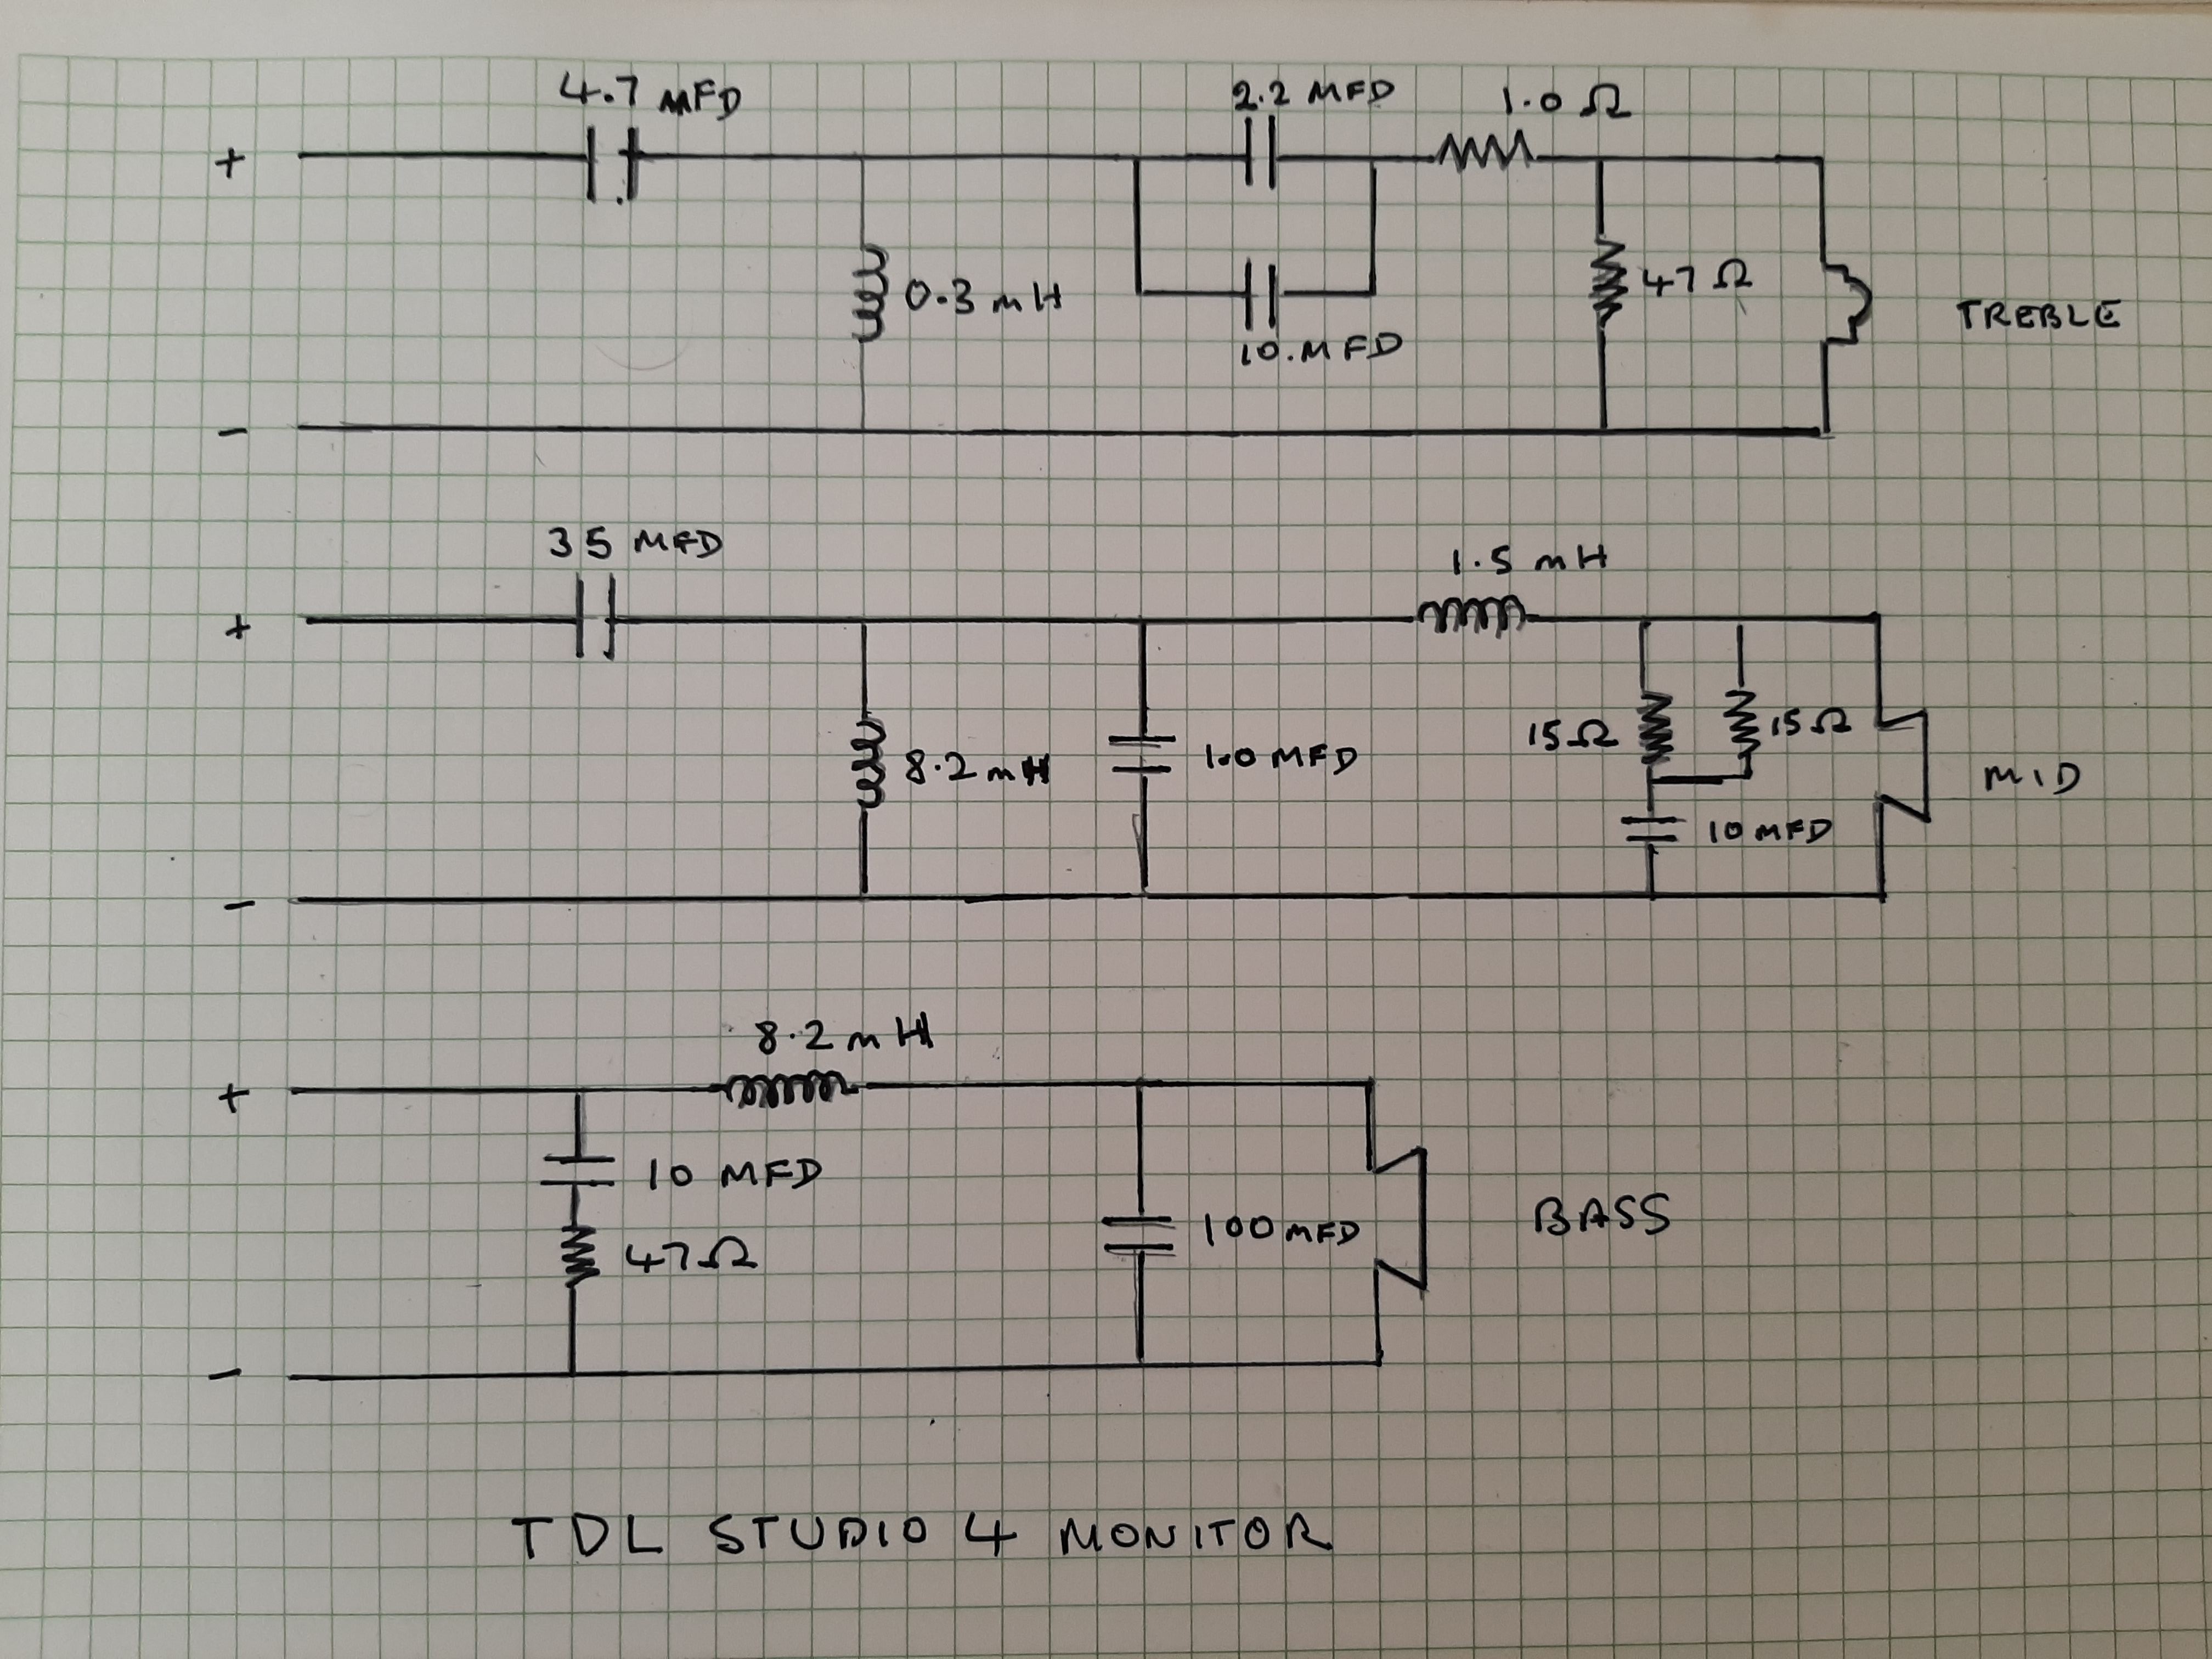 4.7 MFD
2.2 MFD
1.0 Ω
+
0.3 mH
47 Ω
TREBLE
10.MFD
-
35 MFD
1.5 mH
+
15Ω
15Ω
8.2 mH
1.0 MFD
MID
10 MFD
-
8.2 mH
+
10 MFD
47Ω
100 MFD
BASS
-
TDL STUDIO 4 MONITOR